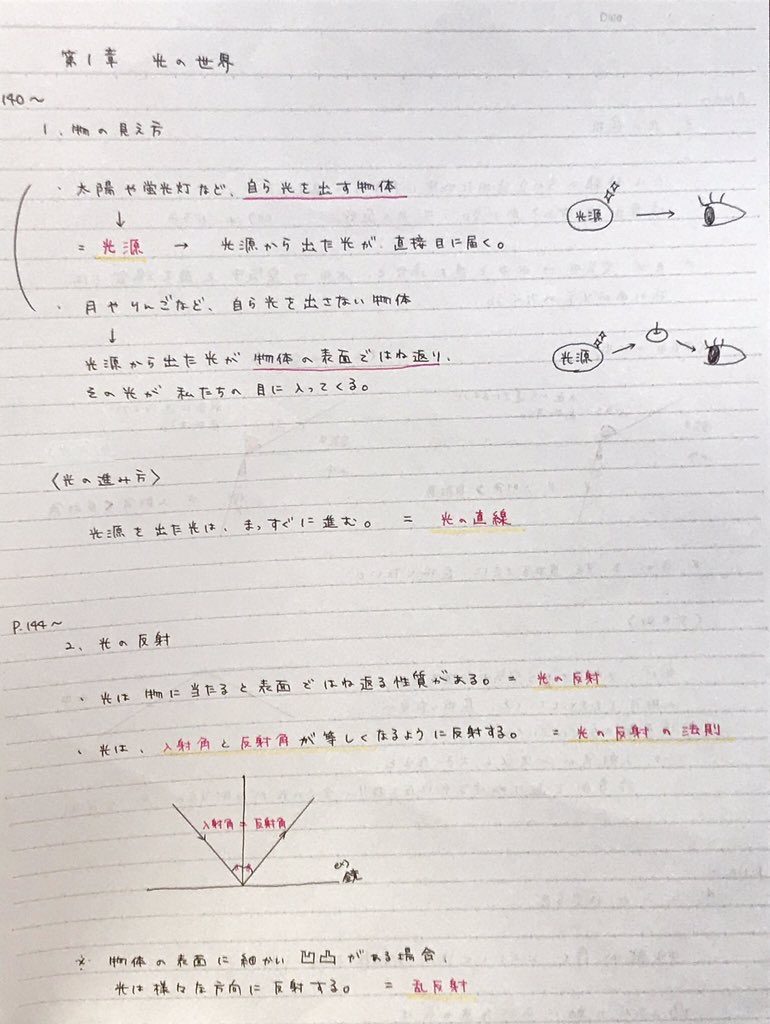 Date
第1章 光の世界
140～
1、物の見え方
・太陽や蛍光灯など、自ら光を出す物体
↓
= 光源 → 光源から出た光が、直接目に届く。
光源 →
・月やりんごなど、自ら光を出さない物体
↓
光源から出た光が 物体の表面ではね返り、
その光が 私たちの目に入ってくる。
光源 → →
〈光の進み方〉
光源を出た光は、まっすぐに進む。 = 光の直線
P.144～
2、光の反射
・光は物に当たると表面ではね返る性質がある。 = 光の反射
・光は、入射角と反射角が等しくなるように反射する。 = 光の反射の法則
入射角 = 反射角
ex)
鏡
※ 物体の表面に細かい凹凸がある場合、
光は様々な方向に反射する。 = 乱反射